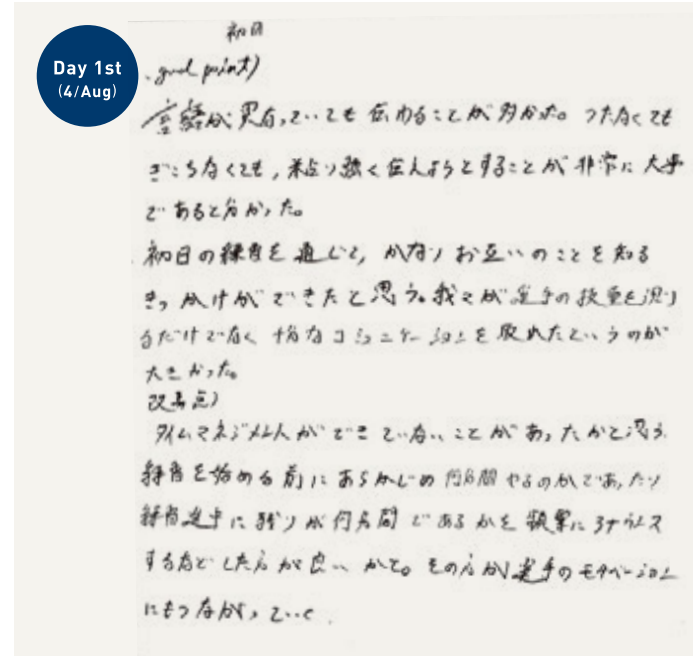 Day 1st
(4/Aug)
初日
good point)
言語が異なっていても伝わることが分かった。つたなくても
ぎこちなくても、粘り強く伝えようとすることが非常に大事
であると分かった。
初日の練習を通じて、かなりお互いのことを知る
きっかけができたと思う。我々が選手の技量を測
るだけでなく十分なコミュニケーションを取れたというのが
大きかった。
改善点)
タイムマネジメントができていないことがあったかと思う。
練習を始める前にあらかじめ何分間やるのかであったり
練習選手に残りが何分間であるかを頻繁にアナウンス
するなどした方が良いかと。その方が選手のモチベーション
にもつながっていく